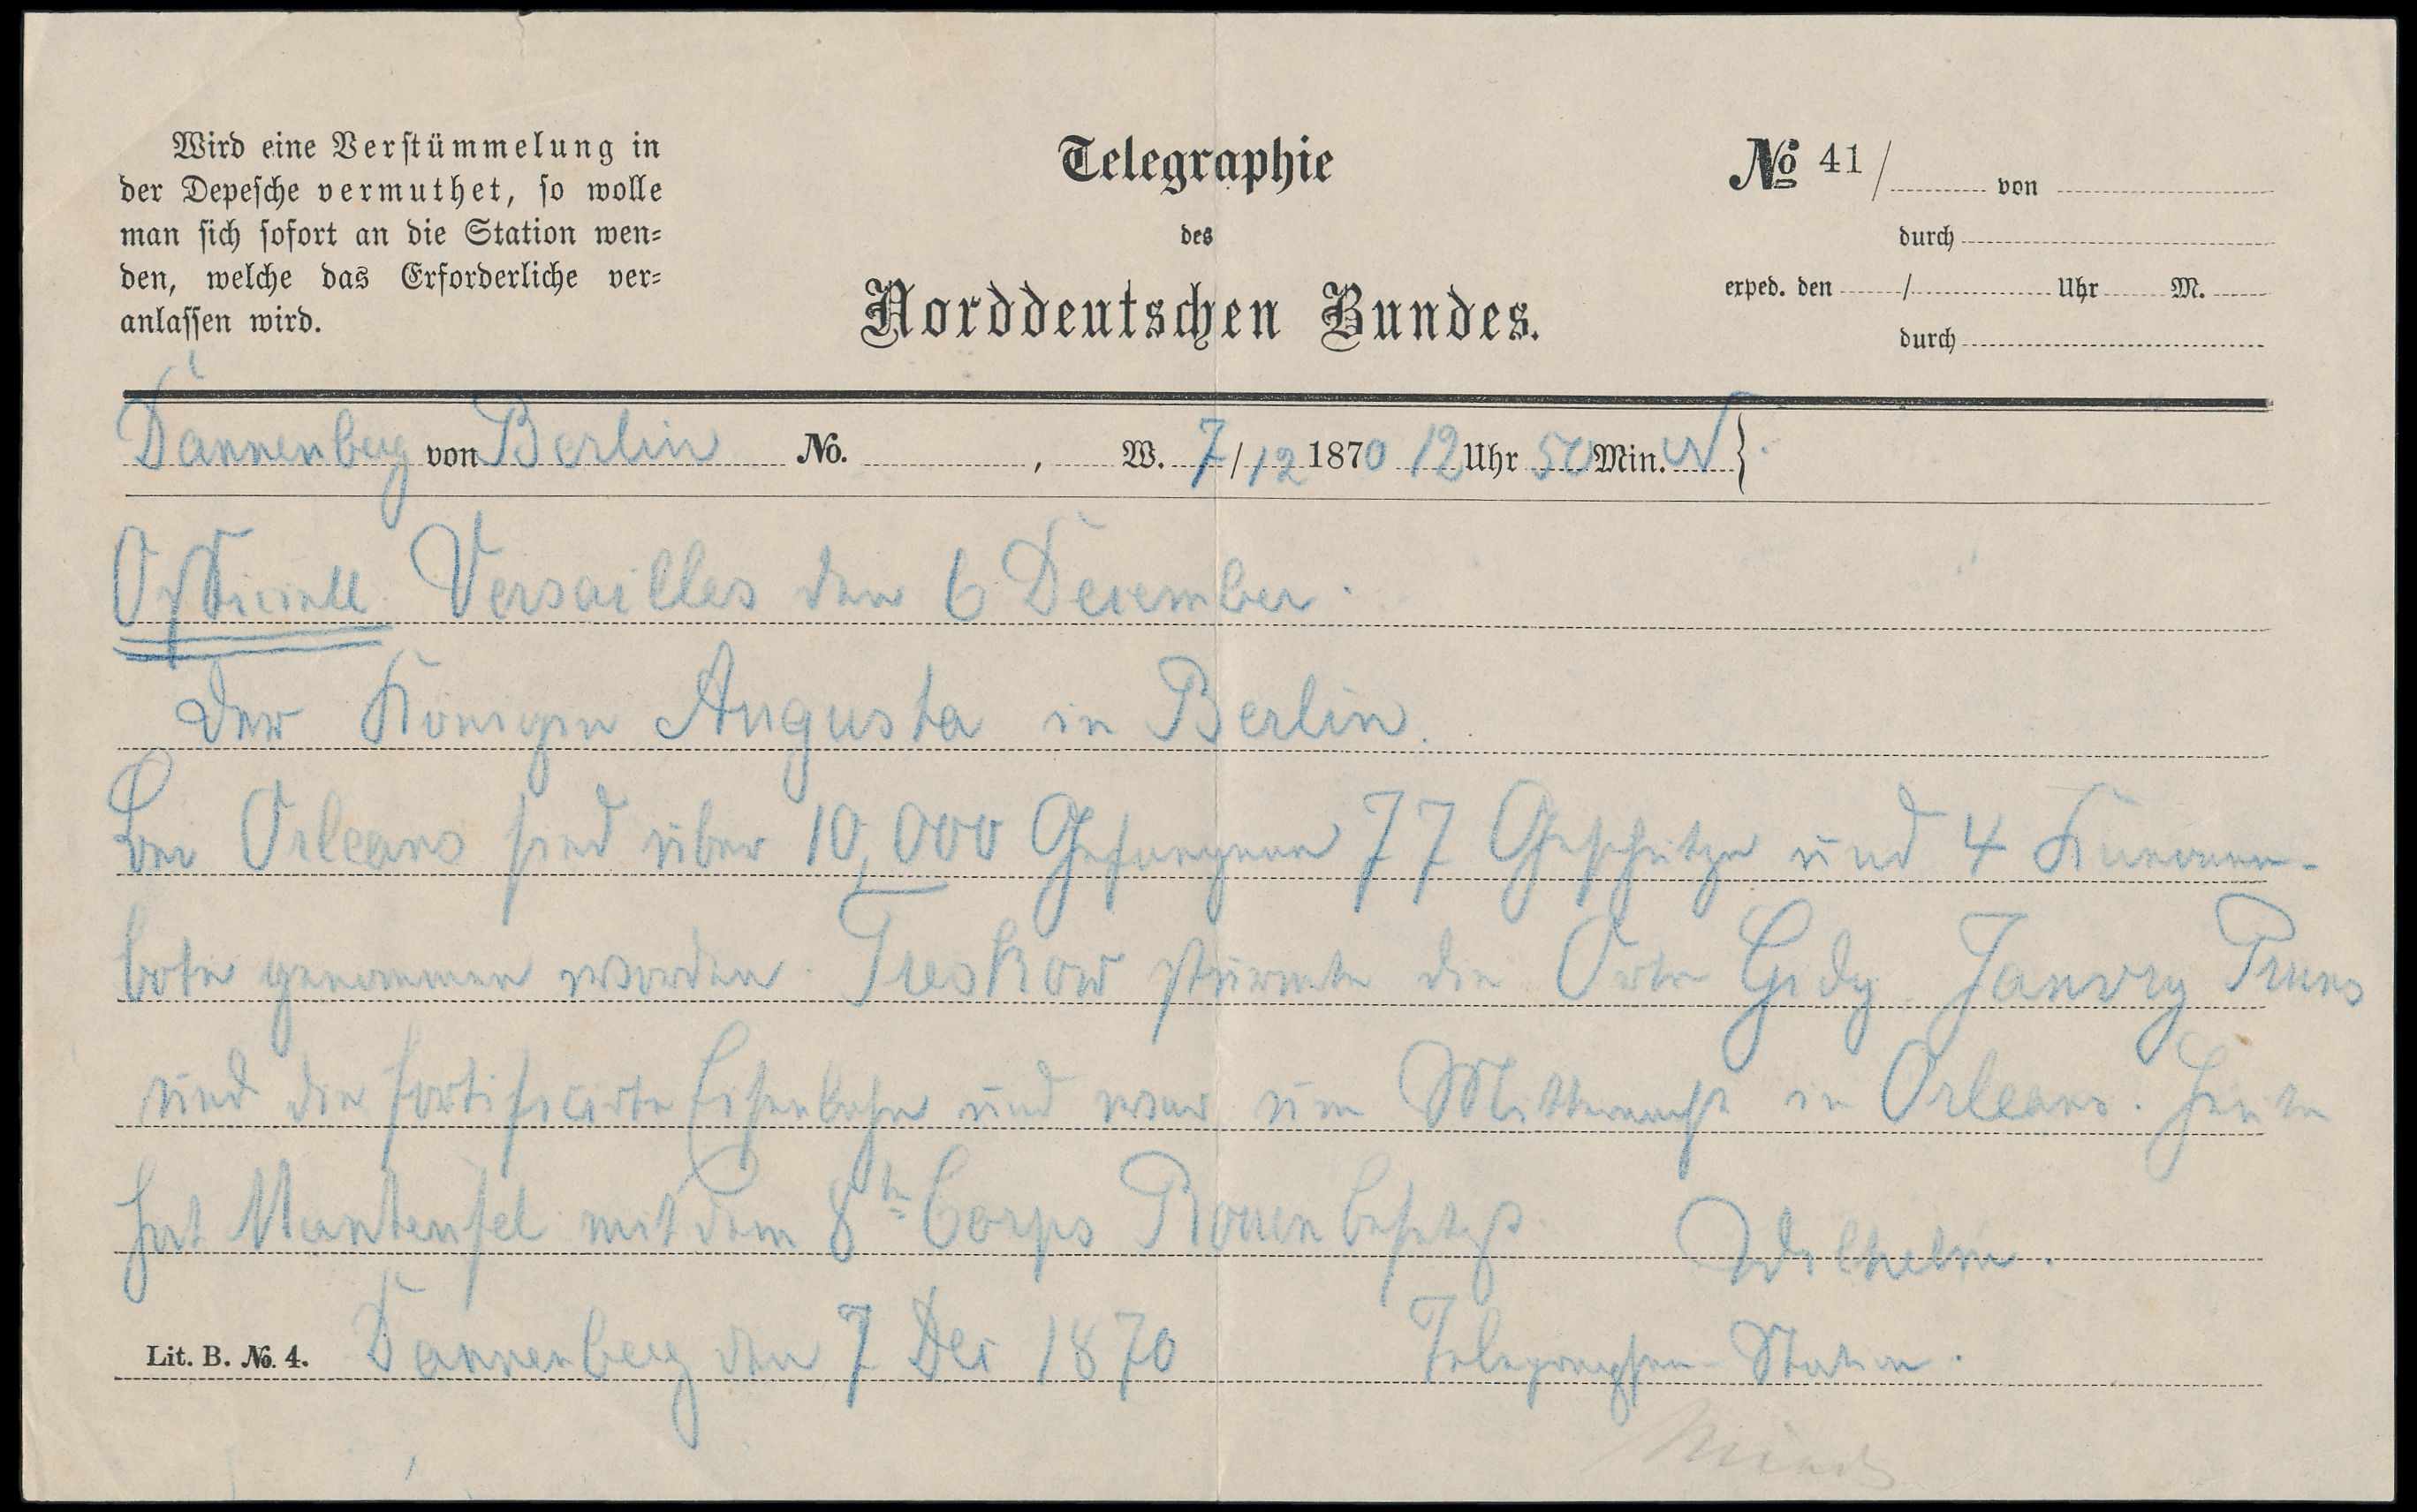 Wird eine Verstümmelung in
der Depesche vermuthet, so wolle
man sich sofort an die Station wen=
den, welche das Erforderliche ver=
anlassen wird.
Telegraphie
des
Norddeutschen Bundes.
No 41/ von
durch
exped. den / Uhr M.
durch
Dannenberg von Berlin No. , W. 7/12 1870 12 Uhr 50 Min. N }
Officiell Versailles den 6 December.
Der Königin Augusta in Berlin.
Bei Orleans sind über 10,000 Gefangene 77 Geschütze und 4 Kanonen-
bote genommen worden. Treskow stürmte die Orte Gidy, Janvry Pruns
und die fortificirte Eisenbahn und war um Mitternacht in Orleans. Heute
hat Manteufel mit dem 8tn Corps Rouen besetzt. Wilhelm.
Lit. B. No. 4. Dannenberg den 7 Dec 1870 Telegraphen-Station.